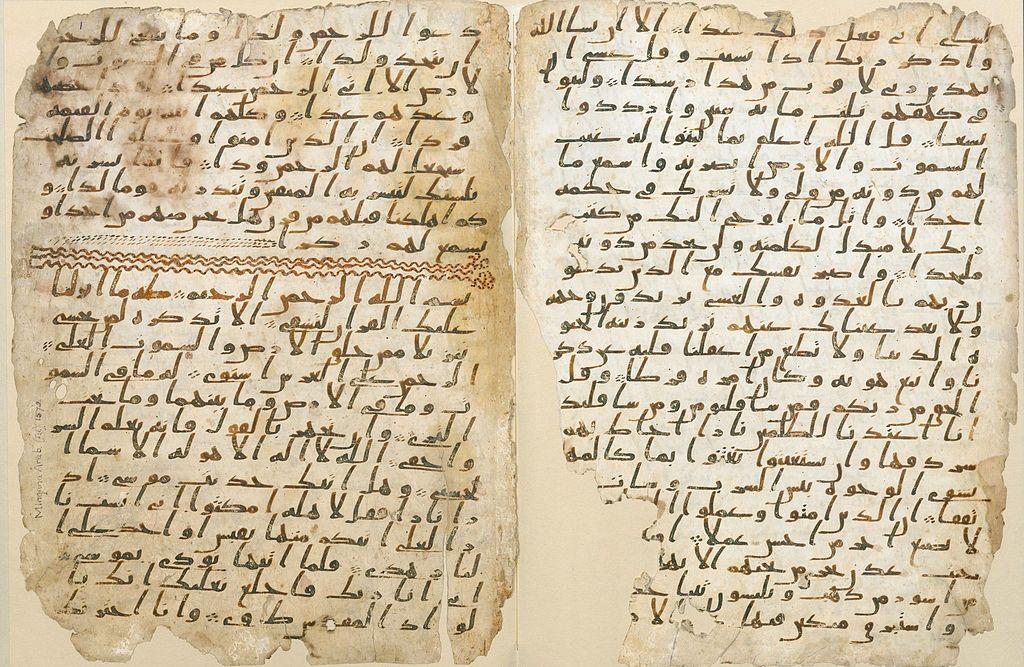 لشاي اني فعل ذلك غدا الا ان يشا الله
واذكر ربك اذا نسيت وقل عسى ان
يهدين ربي لاقرب من هذا رشدا ولبثوا
في كهفهم ثلث مائة سنين وازدادوا
تسعا قل الله اعلم بما لبثوا له غيب
السموت والارض ابصر به واسمع ما
لهم من دونه من ولي ولا يشرك في حكمه
احدا واتل ما اوحي اليك من كتب
ربك لا مبدل لكلمته ولن تجد من دونه
ملتحدا واصبر نفسك مع الذين يدعون
ربهم بالغدوة والعشي يريدون وجهه
ولا تعد عيناك عنهم تريد زينة الحيو
ة الدنيا ولا تطع من اغفلنا قلبه عن ذكر
نا واتبع هويه وكان امره فرطا وقل
الحق من ربكم فمن شا فليومن ومن شا فليكفر
انا اعتدنا للظلمين نارا احاط بهم
سردقها وان يستغيثوا يغثوا بما كالمهل
يشوي الوجوه بئس الشرب وسات
تفقا ان الذين امنوا وعملوا ا
لا نضيع اجر من احسن عملا
جنت عدن تجري من تحتهم الانهر
من اسور من ذهب ويلبسون ثيابا خضر
واستبرق متكين فيها الا
دعوا للرحمن ولدا وما ينبغي للرحمن
ان يتخذ ولدا ان كل من في السموت وا
لارض الا اتي الرحمن عبدا لقد احصيهم
وعدهم عدا وكلهم اتيه يوم القيمة
فردا ان الذين امنوا وعملوا الصلحت
سيجعل لهم الرحمن ودا فانما يسرنه
بلسنك لتبشر به المتقين وتنذر به قوما لدا و
كم اهلكنا قبلهم من قرن هل تحس منهم من احد او
تسمع لهم ركزا
بسم الله الرحمن الرحيم طه ما انزلنا
عليك القران لتشقى الا تذكرة لمن يخشى
تنزيلا ممن خلق الارض والسموت العلى
الرحمن على العرش استوى له ما في السمو
ت وما في الارض وما بينهما وما تحت
الثرى وان تجهر بالقول فانه يعلم السر
واخفى الله لا اله الا هو له الاسما ا
لحسنى وهل اتيك حديث موسى اذ
را نارا فقل لاهله امكثوا اني انست نا
را لعلي اتيكم منها بقبس او اجد على ا
لنار هدى فلما اتيها نودي يموسى
اني انا ربك فاخلع نعليك انك با
لواد المقدس طوى وانا اخترتك
Mingana Arab. Isl. 1572